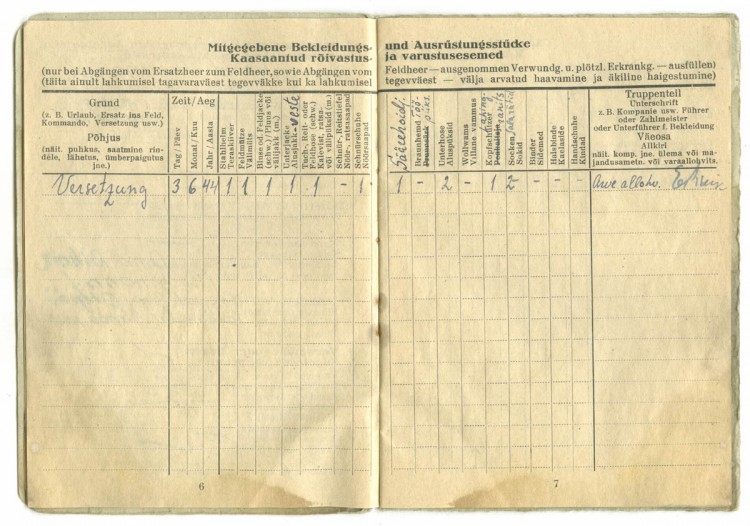 Mitgegebene Bekleidungs-
Kaasaantud rõivastus-
(nur bei Abgängen vom Ersatzheer zum Feldheer, sowie Abgängen vom
(täita ainult lahkumisel tagavaraväest tegevväkke kui ka lahkumisel
Grund
(z. B. Urlaub, Ersatz ins Feld,
Kommando, Versetzung usw.)
Põhjus
(näit. puhkus, saatmine rin-
dele, lähetus, ümberpaigutus
jne.)
Zeit / Aeg
Tag / Päev
Monat / Kuu
Jahr / Aasta
Stahlhelm
Teraskiiver
Feldmütze
Välimüts
Bluse od. Feldjacke
(schw.) / Pluus või
välijakk (m.)
Unterjacke
Alusjakk
veste
Tuch-, Reit- oder
Feldhose (schw.)
Kalevist, ratsa-
või välipüksid (m.)
Schnür-, Reitstiefel
Nöör-, ratsasaapad
Schnürschuhe
Nöörsaapad
Versetzung 3 6 44 1 1 1 1 1 - 1
6
und Ausrüstungsstücke
ja varustusesemed
Feldheer — ausgenommen Verwundg. u. plötzl. Erkrankg. — ausfüllen)
tegevväest — välja arvatud haavamine ja äkiline haigestumine)
Braunhemd
Unterhose
Aluspüksid
Wollwams
Villane vammus
Kopfschützer
Socken
Sokid
Binder
Sidemed
Halsbinde
Kaelaside
Handschuhe
Kindad
Truppenteil
Unterschrift
z. B. Kompanie usw. Führer
oder Zahlmeister
oder Unterführer f. Bekleidung
Väeosa
Allkiri
näit. komp. jne. ülema või ma-
jandusametn. või varaallohvits.
1 - 2 - 1 2 - - -
7